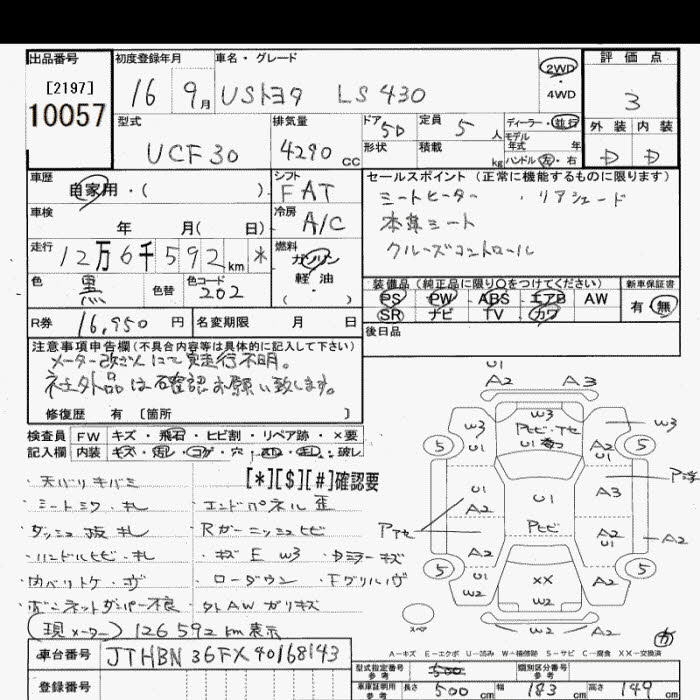 出品番号 初度登録年月 車名・グレード 評価点
[2197]
10057
16 9月 USトヨタ LS430 2WD ・ 4WD 3
型式 排気量 ドア 定員 ディーラー・並行 外装 内装
UCF30 4290cc 5D 5人 モデル年式 年
形状 積載 kg ハンドル 左・右 D D
車歴 自家用・( ) シフト FAT セールスポイント (正常に機能するものに限ります)
シートヒーター ・リアシェード
車検 年 月( 日) 冷房 A/C 本革シート
走行 12万6千592km * 燃料 ガソリン 軽・油 ( ) クルーズコントロール
色 黒 色替 色コード 202 装備品 (純正品に限り○をつけてください) 新車保証書
PS PW ABS エアB AW 有・無
SR ナビ TV カワ
R券 16,950円 名変期限 月 日 後日品
注意事項申告欄(不具合内容等は具体的に記入して下さい)
メーター改ざんにて実走行不明。
社外品は確認お願い致します。
修復歴 有 [箇所 ]
検査員 FW キズ・飛石・ヒビ割・リペア跡・×要
記入欄 内装 キズ・汚レ・コゲ・穴・スレ・キレ・破レ
[*][$][#]確認要
天バリキバミ
シートシワ・キレ エンドパネル歪
ダッシュ板キレ Rガーニッシュヒビ
ハンドルヒビ・キレ ・キズE W3 ・タミラーキズ
ローダウン ・Fグリルヅ
ボンネットダンパー不良 外AWガリキズ
(現メーター) 126592km表示
車台番号 JTHBN36FX40168143
登録番号
U1
A2 A3
W3 W3
Pヒビ・アセ
U1
5 A2 U1 5
U1 U1 A3
A2
Pアセ Pヒビ
A2 A2 U1 A2
5 5
U1 XX A2
W2 W2 U1
スペア W2 A2
A-キズ E-エクボ U-凹み W-補修跡 S-サビ C-腐食 XX-交換済
型式指定番号 参考 500 類別区分番号 参考
車庫証明用 参考 長さ 500 cm 幅 183 cm 高さ 149 cm